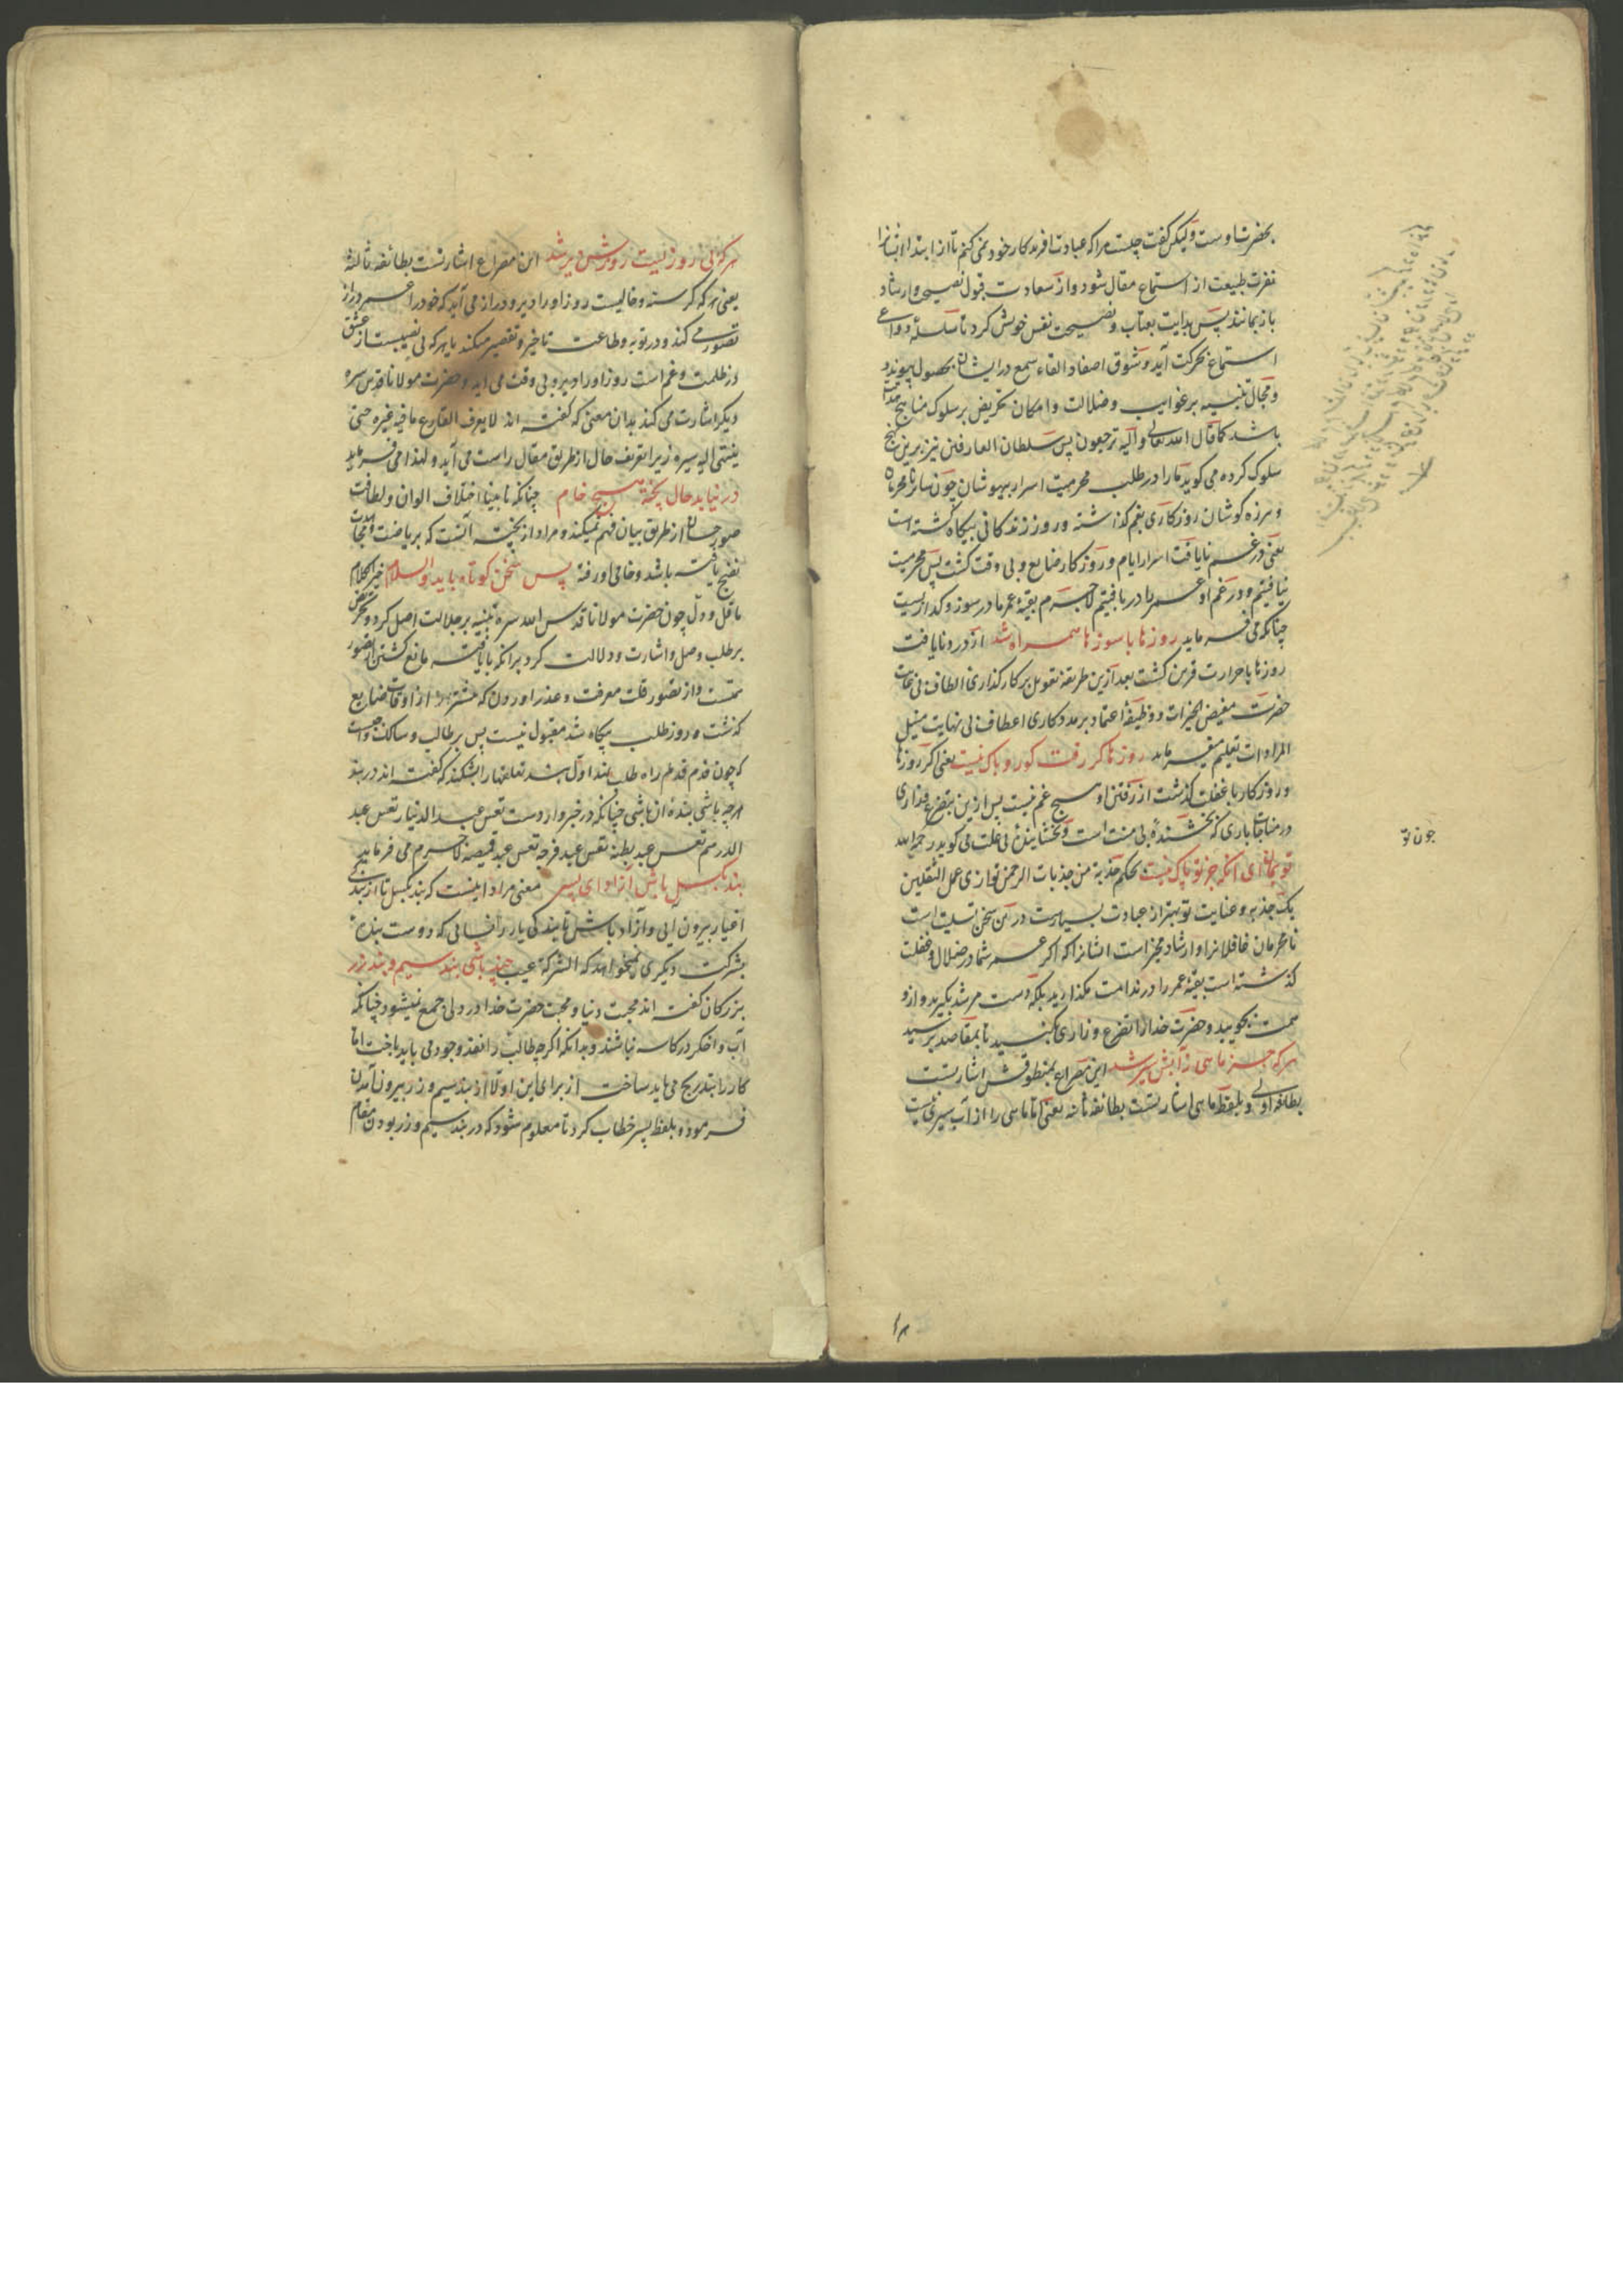 بحضرت اوست ولیکن گفت چیست مرا که عبادت آفریدکار خود نمی کنم تا از ابتدا ایشانرا
نفرت طبیعت از استماع مقال نشود و از سعادت قبول نصیح و ارشاد
باز نمانند پس بدایت بعتاب و نصیحت نفس خویش کرد تا سلسلۀ دواعی
استماع بحرکت آید و شوق اصغا و القاء سمع در ایشان بحصول پیوندد
و مجال تنبیه بر غوایب و ضلالت و امکان تحریض بر سلوک مناهج
باشد کما قال الله تعالی و الیه ترجعون پس سلطان العارفین نیز برین نهج
سلوک کرده می گوید ما را در طلب محرمیت اسرار بیهوشان چون سایر نامحرمان
و هرزه کوشان روزگاری بغم گذاشته و روز زندگانی بیگاه گشته است
یعنی در غم نایافت اسرار ایام و روزگار ضایع و بی وقت گشت پس محرمیت
نیافتیم و در غم او عمر را دریافتیم لاجرم بقیۀ عمر ما در سوز و گدازیست
چنانکه می فرماید روزها با سوزها همراه شد از درد نایافت
روزها با حرارت قرین گشت بعد ازین طریقۀ تفویض بر کارگذاری الطاف بی غایت
حضرت مفیض الخیرات و وظیفۀ اعتماد بر مددکاری اعطاف بی نهایت منیل
المرادات تعلیم میفرماید روزها کر رفت کو رو باک نیست یعنی اگر روزها
و روزگار با غفلت گذشت از رفتن او هیچ غم نیست پس ازین بتضرع و زاری
در مناجات باری که بخشندۀ بی منت است و بخشایندۀ بی علت می گوید رحمه الله
تو بمان ای آنکه جز تو پاک نیست بحکم جذبة من جذبات الرحمن توازی عمل الثقلین
یک جذبه و عنایت تو بهتر از عبادت بسیارست درین سخن تسلیت است
نامحرمان غافلانرا و ارشاد مجز است ایشانرا که اگر عمر شما در ضلال و غفلت
گذشته است بقیۀ عمر را در ندامت مگذارید بلکه دست مرشد بگیرید و ازو
همت بجویید و حضرت خدا را تضرع و زاری کنید تا بمقاصد برسید
هر که جز ماهی ز آبش سیر شد این مصراع بمنطوقش اشارتست
بطایفۀ اولی و بلفظ ماهی اشارتست بطایفۀ ثانیه یعنی اما ماهی را از آب سیری نیست
چون تو
هر که بی روزیست روزش دیر شد این مصراع اشارتست بطایفۀ ثالثه
یعنی هر که گرسنه و خالیست روز او را دیر و دراز می آید که خود را عمر دراز
تصور می کند و در توبه و طاعت تاخیر و تقصیر میکند یا هر که بی نصیبست از عشق
در ظلمت و غم است روز او را دیر و بی وقت می آید و حضرت مولانا قدس سره
دیگر اشارت می کند بدان معنی که گفته اند لا یعرف القارع ما فیه غیره حتی
ینتهی الیه سیره زیرا تعریف حال از طریق مقال راست می آید و لهذا می فرماید
در نیابد حال پخته هیچ خام چنانکه نابینا اختلاف الوان و لطافت
صور حسان از طریق بیان فهم نمیکند و مراد از پخته آنست که بریاضت و مجاهدت
نضج یافته باشد و خامی او رفته پس سخن کوتاه باید والسلام خیر الکلام
ما قل و دل چون حضرت مولانا قدس الله سره تنبیه بر جلالت اصل کرد و تحریض
بر طلب وصل و اشارت و دلالت کرد برانکه نایافته مانع گشتن از قصور
همتست و از تصور قلت معرفت و عذر آوردن که بیشتر از اوقات ضایع
گذشته و روز طلب بیگاه شد مقبول نیست پس بر طالب و سالک واجبست
که چون قدم در راه طلب نهد اول بند تعلقها را بشکند که گفته اند در بند
هر چه باشی بندۀ آن باشی چنانکه در خبر وارد است تعس عبد الدنیا و تعس عبد
الدرهم تعس عبد بطنه تعس عبد فرجه تعس عبد قمیصه لاجرم می فرماید
بند بگسل باش آزاد ای پسر معنی مراد اینست که بند بگسل تا از بندگی
اغیار بیرون آیی و آزاد باش تا بندگی یار را شایی که دوست بندۀ
بشرکت دیگری نمیخواهد که الشرکة عیب چند باشی بند سیم و بند زر
بزرگان گفته اند محبت دنیا و محبت حضرت خدا در دلی جمع نمیشود چنانکه
آب و اخگر در کاسه نباشند و بدانکه اگر چه طالب را نقد وجود می باید باخت اما
کار را بتدریج می باید ساخت از برای این اولا از بند سیم و زر بیرون آمدن
فرموده و بلفظ پسر خطاب کرد تا معلوم شود که در بند سیم و زر بودن مقام